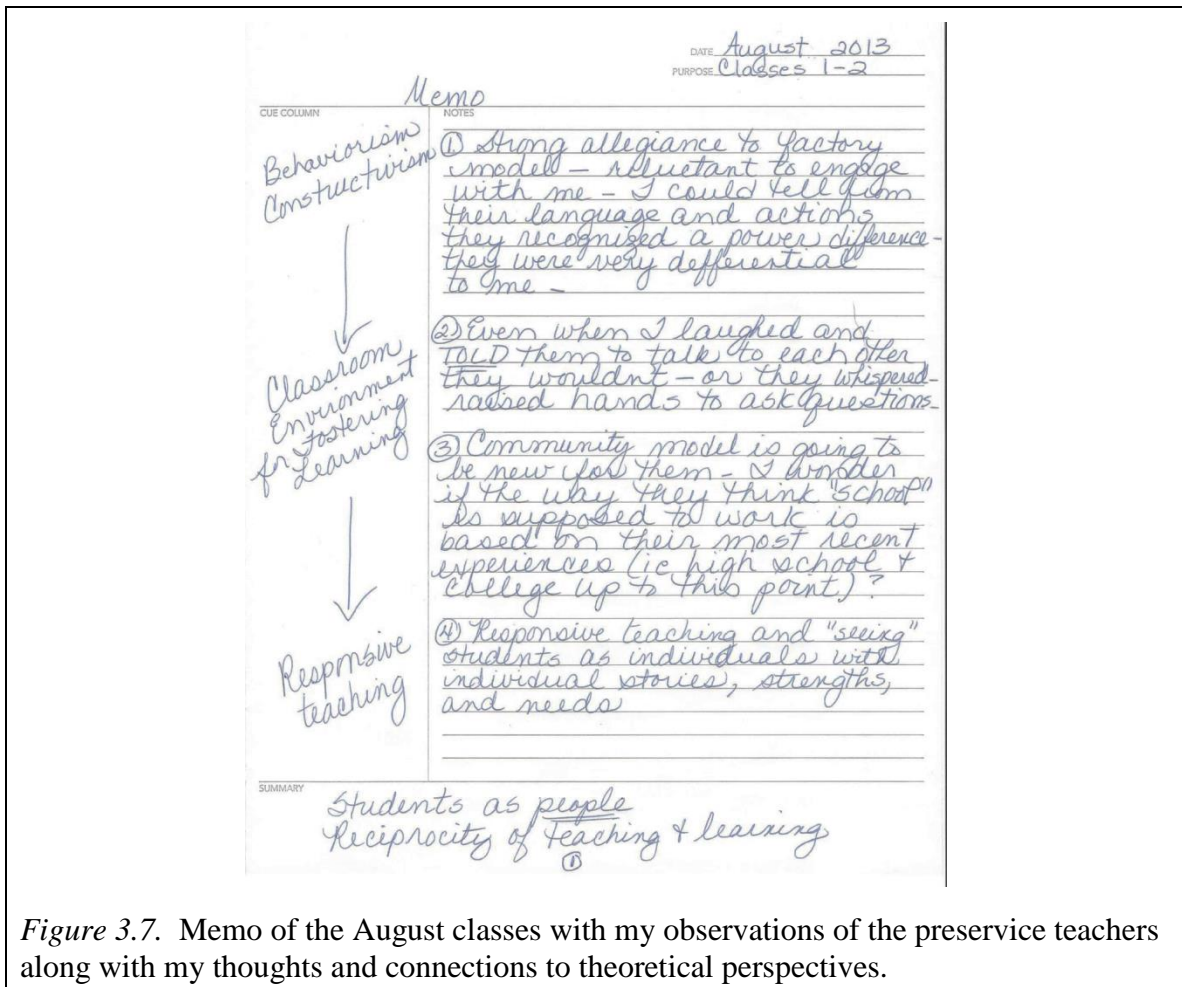 DATE August 2013
PURPOSE Classes 1-2
Memo
CUE COLUMN
NOTES
Behaviorism
Constuctivism
Classroom
Environment
for Fostering
Learning
Responsive
teaching
① Strong allegiance to factory
model - reluctant to engage
with me - I could tell from
their language and actions
they recognized a power difference -
they were very defferential
to me -
② Even when I laughed and
TOLD them to talk to each other
they wouldnt - or they whispered -
raised hands to ask questions -
③ Community model is going to
be new for them - I wonder
if the way they think "school"
is supposed to work is
based on their most recent
experiences (ie high school +
college up to this point)?
④ Responsive teaching and "seeing"
students as individuals with
individual stories, strengths,
and needs
SUMMARY
Students as people
Reciprocity of teaching + learning
①
Figure 3.7. Memo of the August classes with my observations of the preservice teachers
along with my thoughts and connections to theoretical perspectives.